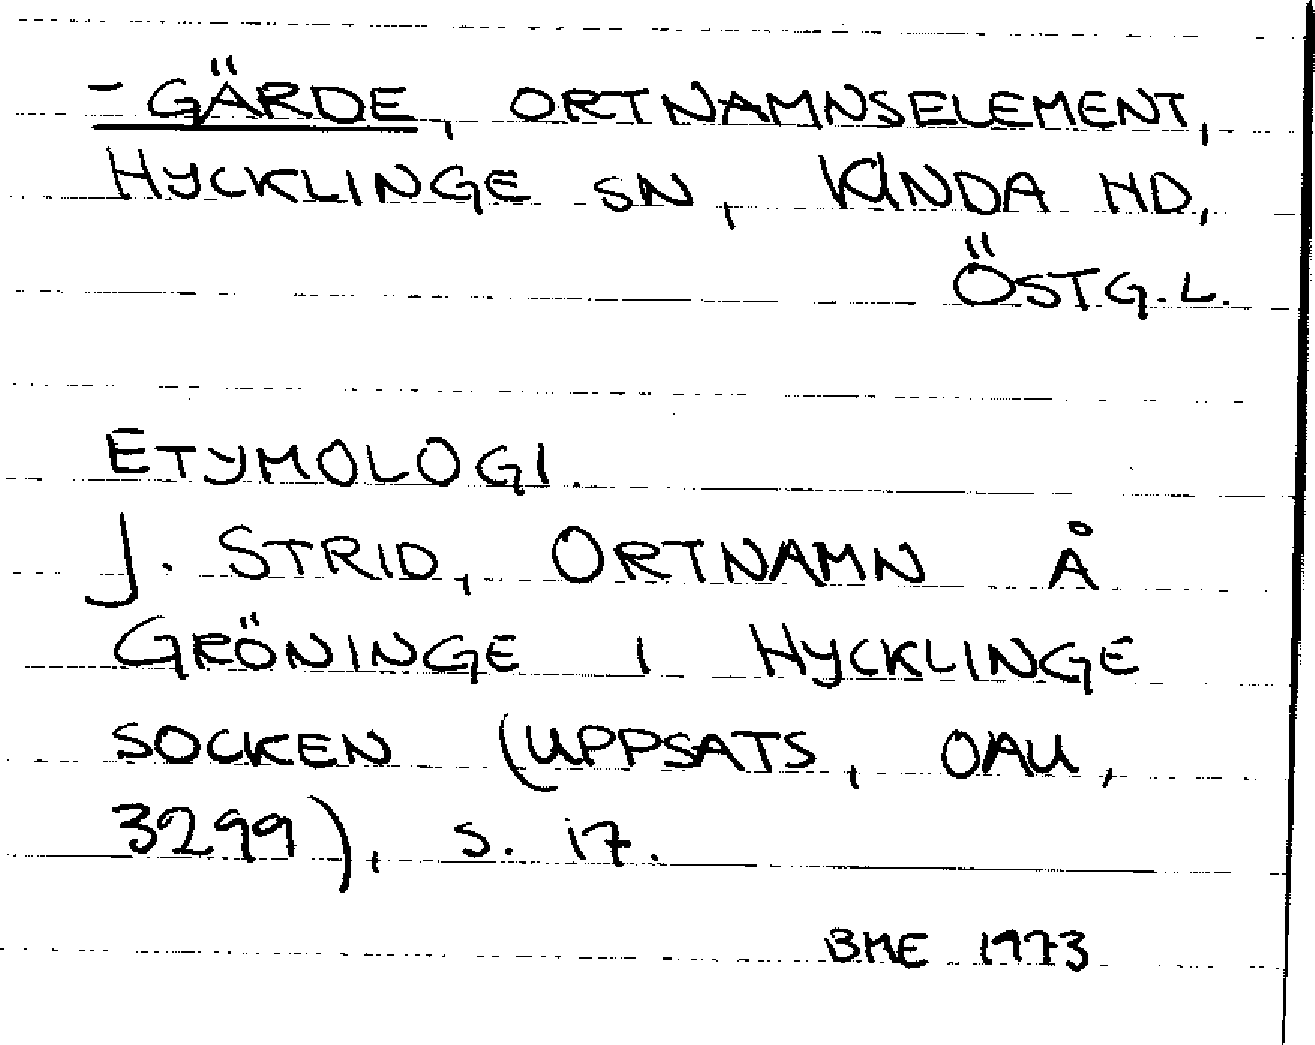 -GÄRDE, ORTNAMNSELEMENT,
HYCKLINGE SN, KINDA HD,
ÖSTG.L.
ETYMOLOGI.
J. STRID, ORTNAMN Å
GRÖNINGE I HYCKLINGE
SOCKEN (UPPSATS, OAU,
3299), S. 17.
BME 1973